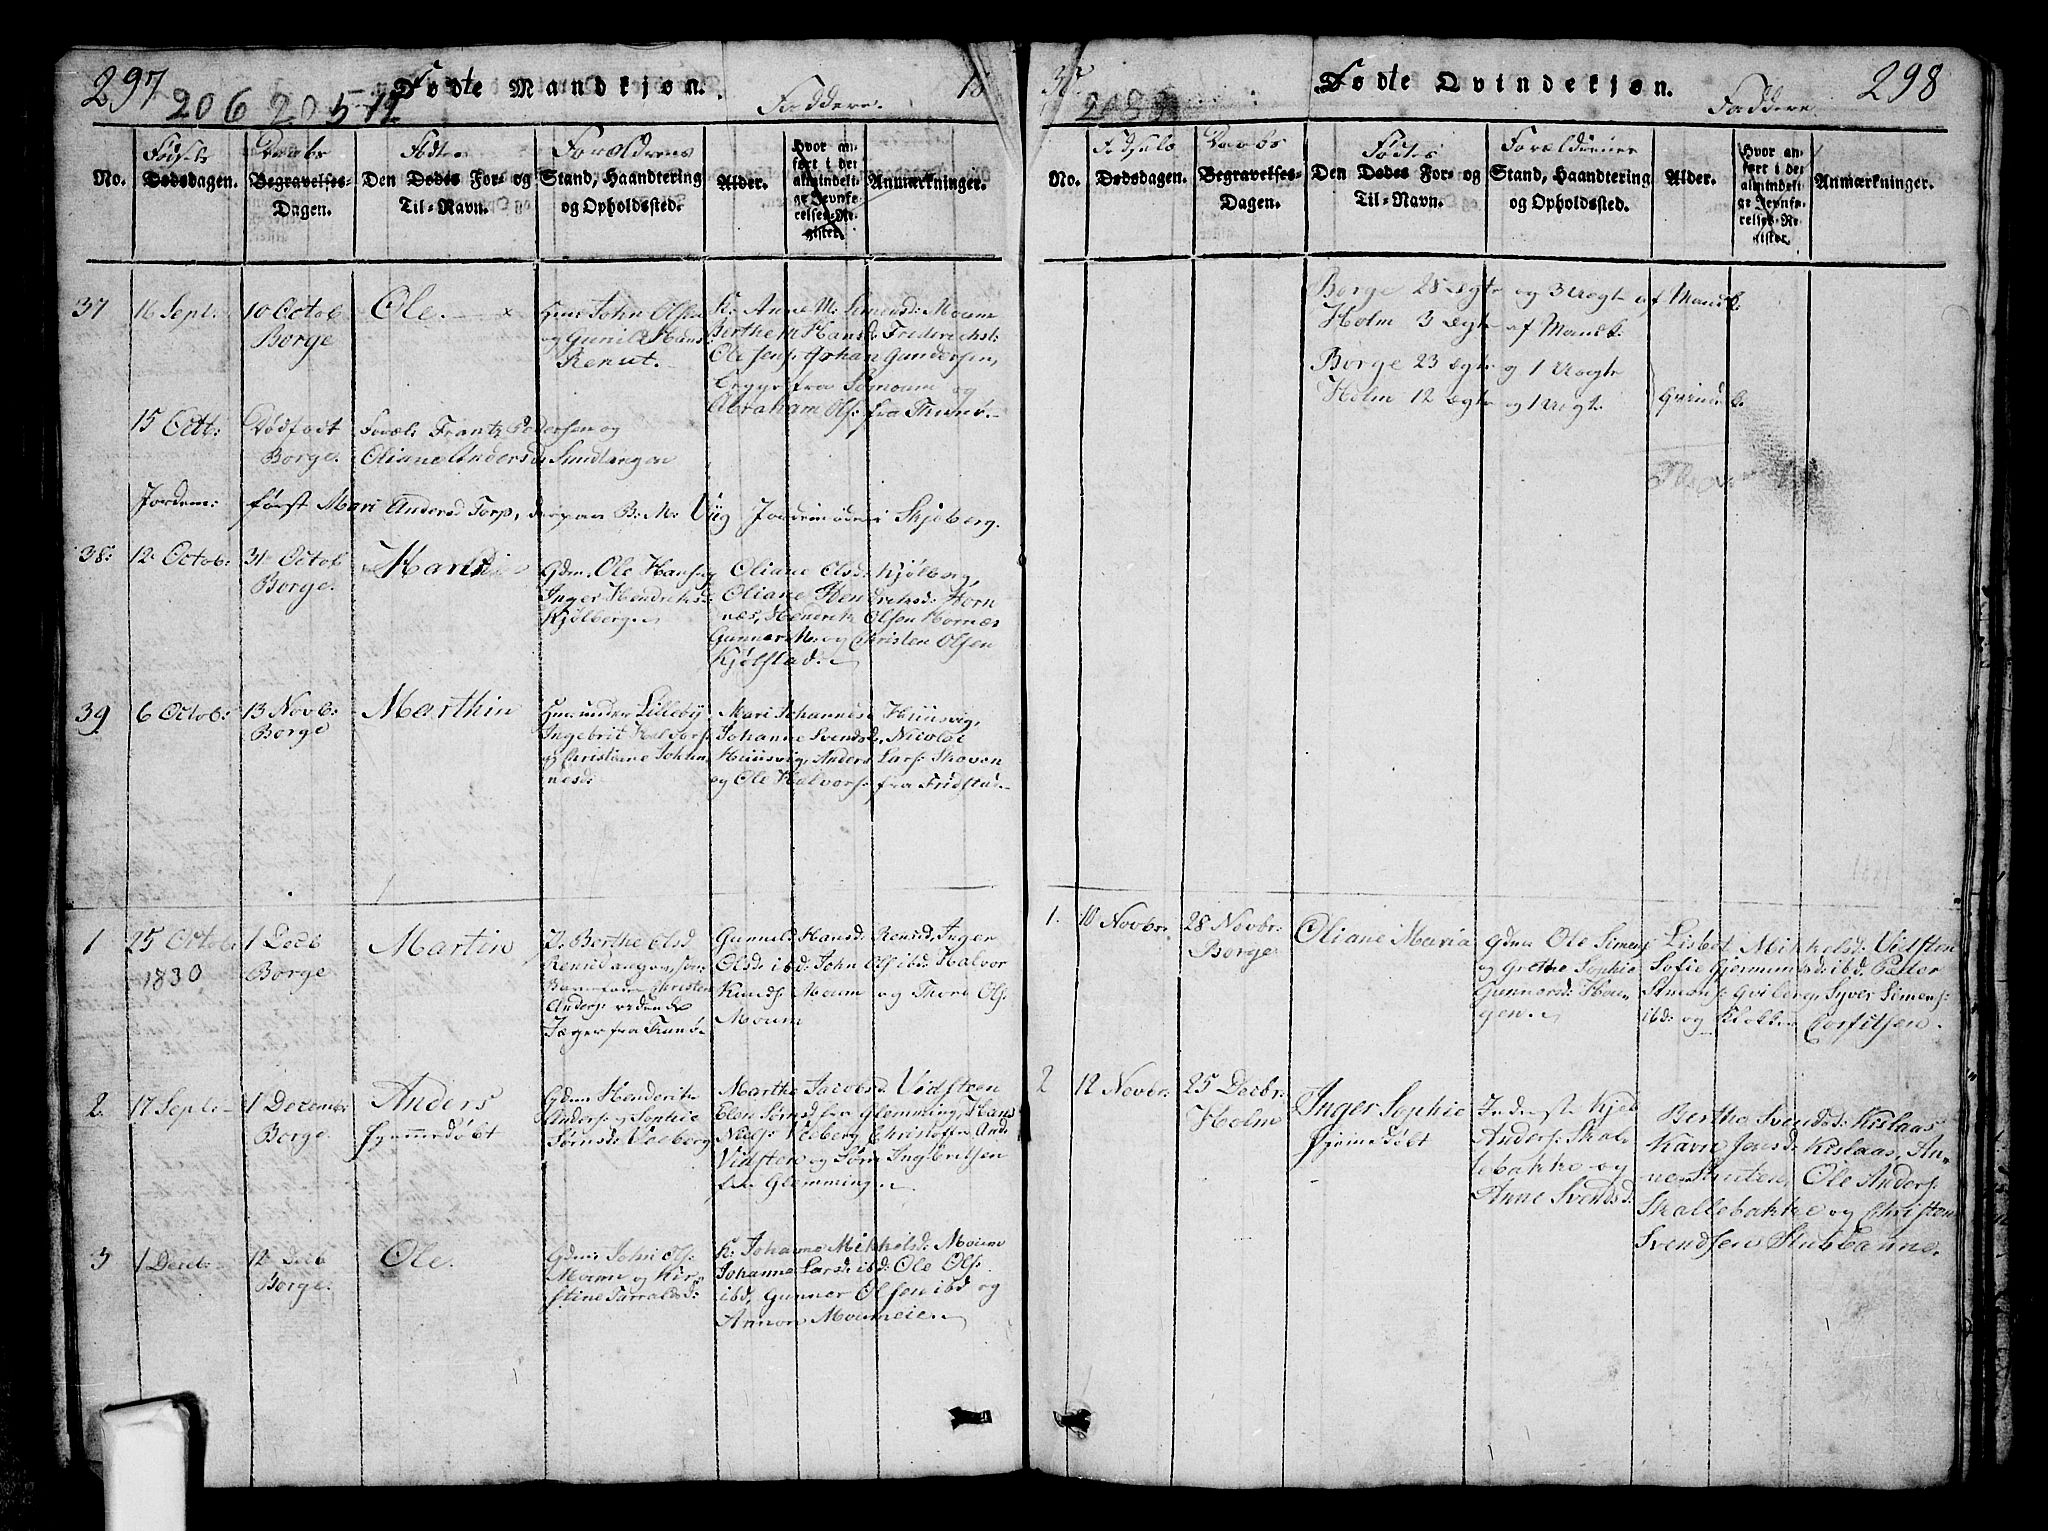 297
206 205 12
Fødte Mandkjøn.
Faddere.
No.
Fødsels
Dødsdagen.
Daabs
Begravelses-
Dagen.
Fødte
Den Dødes For- og
Til-Navn.
Forældrenes
Stand, Haandtering
og Opholdssted.
Alder.
Hvor an-
ført i det
almindeli-
ge Jevnfø-
relses-Re-
gister.
Anmærkninger.
37
16 Sept:
10 Octob
Borge
Ole.
Hm John Olsen
og Gunild Hans
Renut.
K. Anne M: Simensd: Moum
Berthe M Hansd: Frederichst:
Ole Jens: Johan Gundersen,
fra Sømoum og
Abraham Ols: fra Thunø.
15 Octb:
Dødfødt
Borge.
Foræl: Frantz Pedersen og
Oliane Andersd
Jordem:
først Mari Andersd Torp, derpaa B: M: Viig Jordemoder i Skjeberg.
38:
12 Octob:
31 Octob
Borge.
Gdm. Ole Hans og
Inger Hendriksd:
Kjølberg.
Oliane Olsd: Kjølberg,
Oliane Hendriksd: Horn
næs, Hendrik Olsen Hornæs
Gunner H: og Christen Olsen
Kjølstad.
39
6 Octob:
13 Novb:
Borge
Marthin
Hm. under Lilleby
Ingebrit Halvors
og Christiane Johan
nesd:
Mari Johannesd Huusvig,
Johanne Svendsd, Nicolai
Huusvig, Anders Lars: Skoven
og Ole Halvors: fra Fridstad
1
25 Octob:
1830
1 Decb
Borge
Martin
P. Berthe Olsd
Renud angiven som
Barnefader Christen
Anders: ridende
Jæger fra Tunø.
Gunnild Hansd: Rensd, Inger
Olsd: ibd: John Ols ibd: Halvor
Knuds: Moum og Thore Ols:
Moum
2
17 Sept:
1 Decembr
Borge.
Anders
hjemmedøbt
Gdm Henderik
Anders: og Sophie
Sørnsd: Veeberg
Marthe Jacobsd: Vidsteen
Elen Sørnsd fra Glemming, Hans
Niels: Veeberg Christoffer Ands
Vidsteen og Søren Ingbretsen
fra Glemming
3
1 Decb:
12 Decb
Borge.
Ole.
Gdm: John Ols:
Moum og Kir-
stine Tarraldsd:
K: Johanne Mikkelsd: Moum
Johanne Larsd: ibd: Ole Ols:
ibd, Gunner Olsen ibd og
Armon Moumeie.
298
Fødte Qvindekjøn.
Faddere
No.
Fødsels
Dødsdagen.
Daabs
Begravelses-
Dagen.
Fødtes
Den Dødes For- og
Til-Navn.
Forældrenes
Stand, Haandtering
og Opholdssted.
Alder.
Hvor an-
ført i det
almindeli-
ge Jevnfø-
relses-Re-
gister.
Anmærkninger.
Borge 28 ægte og 3 uægte af Mandk.
Holm 3 ægte af Mandk.
Borge 23 ægte og 1 uægte
Holm 12 ægte og 1 uægte
Qvindek.
1.
10 Novbr:
28 Novbr:
Borge
Oliane Maria
Gdm Ole Simens
og Grethe Sophie
Gunnersd: Hauen
gen.
Lisbet Mikkelsd: Vidsteen
Sofie Gjermundsd: ibd. Peder
Simons: Qviberg, Syver Simens:
ibd: og Klokker Corfitsen.
2
12 Novbr:
25 Decbr:
Holm
Inger Sophie
hjemdøbt
Inderste Kjel
Anders: Skal-
lebakke og
Anne Svendsd:
Berthe Svendsd: Kislaas
Karen Jensd: Kislaas, An-
ne Smiten, Ole Anders:
Skallebakke og Christen
Svendsen Stubbanne.